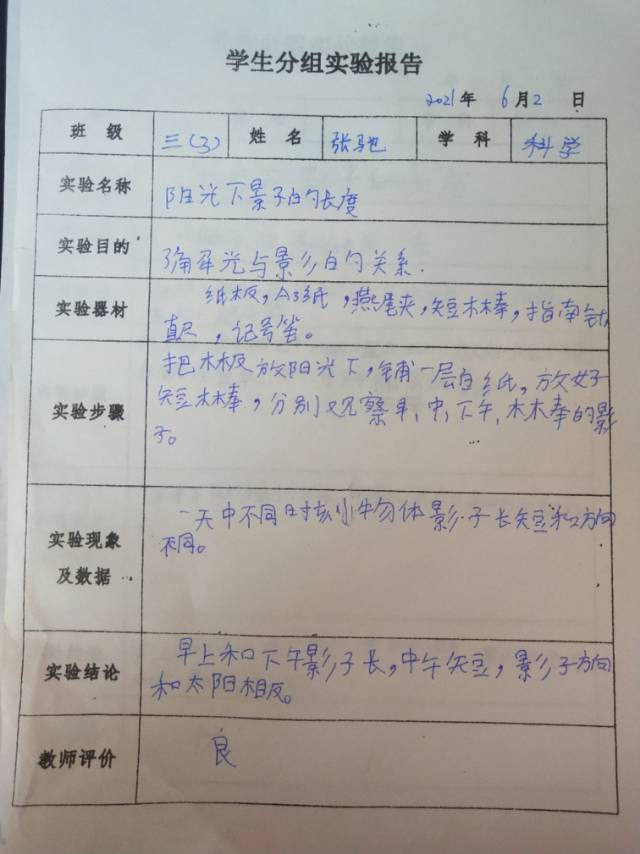 学生分组实验报告
2021年 6月2 日
班 级 三(3) 姓 名 张驰 学 科 科学
实验名称 阳光下影子的长度
实验目的 阳光与影子的关系.
实验器材 纸板,A3纸,燕尾夹,短木棒,指南针
直尺,记号笔。
把木板放阳光下,铺一层白纸,放好
实验步骤 短木棒,分别观察早,中,下午,木棒的影
子。
一天中不同时刻物体影子长短和方向
实验现象 不同。
及数据
早上和下午影子长,中午短,影子方向
实验结论 和太阳相反。
教师评价 良